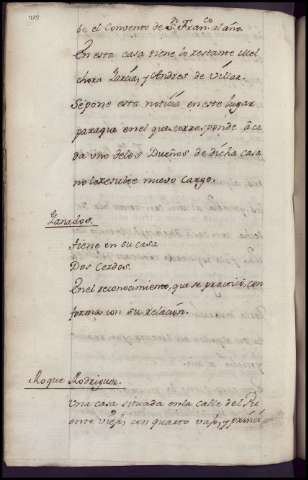 be, el Convento de Sn. Franco. al año.
En esta casa tiene lo restante Mel
chora Garcia, y Andres de Villar.
Se pone esta noticia en este lugar
para que en el que corresponde à ca
da uno de los Dueños de dicha casa
no le resulte nuevo Cargo.
Ganados.
tiene en su casa
Dos Cerdos.
En el reconocimiento, que se practicò, con
forma con su Relacion.
Roque Rodriguez.
Una casa situada en la calle del Pu
ente viejo, con quarto vajo, y princi